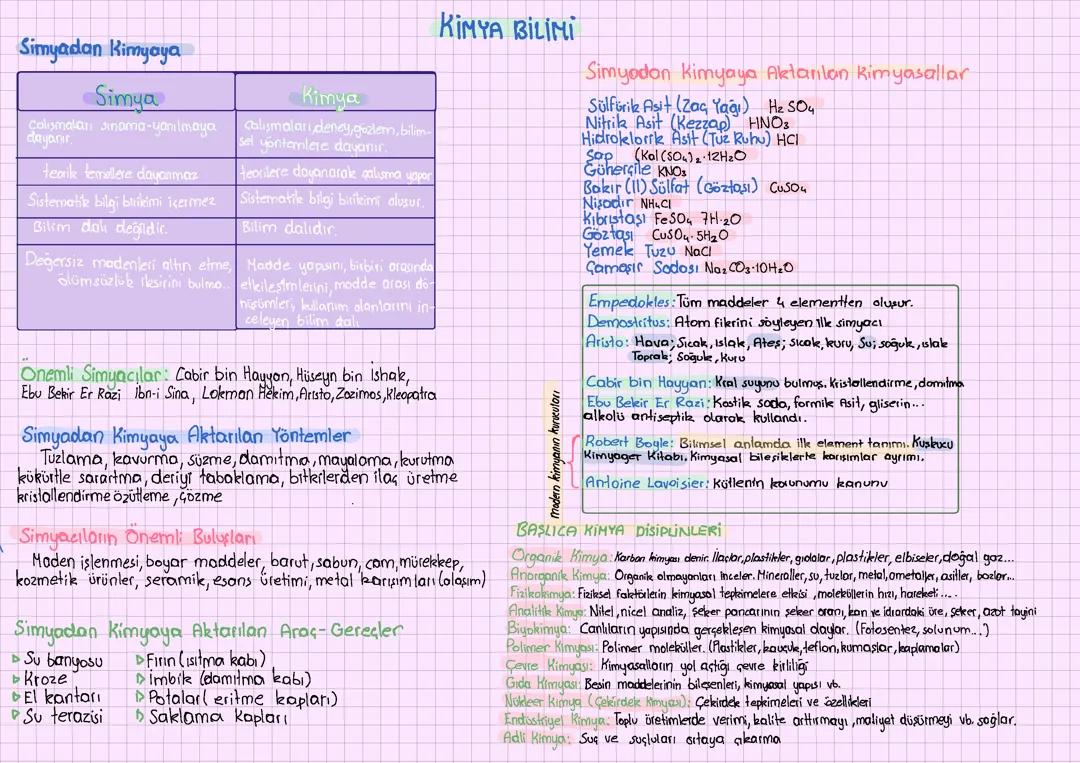 KİMYA BİLİMİ
Simyadan Kimyaya
Simya
Kimya
Çalışmaları sınama-yanılmaya
dayanır.
Çalışmaları, deney, gözlem, bilim-
sel yöntemlere dayanır.
teorik temellere dayanmaz
teorilere dayanarak çalışma yapar
Sistematik bilgi birikimi içermez
Sistematik bilgi birikimi oluşur.
Bilim dalı değildir.
Bilim dalıdır.
Değersiz madenleri altın etme,
ölümsüzlük iksirini bulma..
Madde yapısını, birbiri arasında
etkileşimlerini, madde arası dö-
nüşümleri, kullanım alanlarını in-
celeyen bilim dalı
Önemli Simyacılar: Cabir bin Hayyan, Hüseyn bin İshak,
Ebu Bekir Er Razi İbn-i Sina, Lokman Hekim, Aristo, Zozimos, Kleopatra
Simyadan Kimyaya Aktarılan Yöntemler
Tuzlama, kavurma, süzme, damıtma, mayalama, kurutma
kükürtle sarartma, deriyi tabaklama, bitkilerden ilaç üretme
kristallendirme özütleme, çözme
Simyacıların Önemli Buluşları
Maden işlenmesi, boyar maddeler, barut, sabun, cam, mürekkep,
kozmetik ürünler, seramik, esans üretimi, metal karışımları (alaşım)
Simyadan Kimyaya Aktarılan Araç-Gereçler
▷ Su banyosu
▷ Kroze
▷ El kantarı
▷ Su terazisi
▷ Fırın (ısıtma kabı)
▷ İmbik (damıtma kabı)
▷ Potalar (eritme kapları)
▷ Saklama kapları
Simyadan Kimyaya Aktarılan Kimyasallar
Sülfürik Asit (Zaç Yağı) H₂ SO₄
Nitrik Asit (Kezzap) HNO₃
Hidroklorik Asit (Tuz Ruhu) HCl
Şap (Kal(SO₄)₂·12H₂O
Güherçile KNO₃
Bakır (II) Sülfat (Göztaşı) CuSO₄
Nişadır NH₄Cl
Kıbrıstaşı FeSO₄ 7H·₂O
Göztaşı CuSO₄·5H₂O
Yemek Tuzu NaCl
Çamaşır Sodası Na₂CO₃·10H₂O
Empedokles: Tüm maddeler 4 elementten oluşur.
Demostritus: Atom fikrini söyleyen ilk simyacı
Aristo: Hava; Sıcak, ıslak, Ateş; sıcak, kuru, Su; soğuk, ıslak
Toprak; Soğuk, Kuru
Cabir bin Hayyan: Kral suyunu bulmuş. Kristallendirme, damıtma
Ebu Bekir Er Razi: Kostik soda, formik Asit, gliserin...
alkolü antiseptik olarak kullandı.
modern kimyanın kurucuları
Robert Boyle: Bilimsel anlamda ilk element tanımı. Kuşkucu
Kimyager Kitabı. Kimyasal bileşiklerle karışımlar ayrımı.
Antoine Lavoisier: Kütlenin korunumu kanunu
BAŞLICA KİMYA DİSİPLİNLERİ
Organik Kimya: Karbon kimyası denir. İlaçlar, plastikler, gıdalar, plastikler, elbiseler, doğal gaz...
Anorganik Kimya: Organik olmayanları inceler. Mineraller, su, tuzlar, metal, ametaller, asitler, bazlar...
Fizikokimya: Fiziksel faktörlerin kimyasal tepkimelere etkisi, moleküllerin hızı, hareketi....
Analitik Kimya: Nitel, nicel analiz, şeker pancarının şeker oranı, kan ve idrardaki üre, şeker, azot tayini
Biyokimya: Canlıların yapısında gerçekleşen kimyasal olaylar. (Fotosentez, solunum...)
Polimer Kimyası: Polimer moleküller. (Plastikler, kauçuk, teflon, kumaşlar, kaplamalar)
Çevre Kimyası: Kimyasalların yol açtığı çevre kirliliği
Gıda Kimyası: Besin maddelerinin bileşenleri, kimyasal yapısı vb.
Nükleer Kimya (Çekirdek Kimyası): Çekirdek tepkimeleri ve özellikleri
Endüstriyel Kimya: Toplu üretimlerde verimi, kalite arttırmayı, maliyet düşürmeyi vb. sağlar.
Adli Kimya: Suç ve suçluları ortaya çıkarma